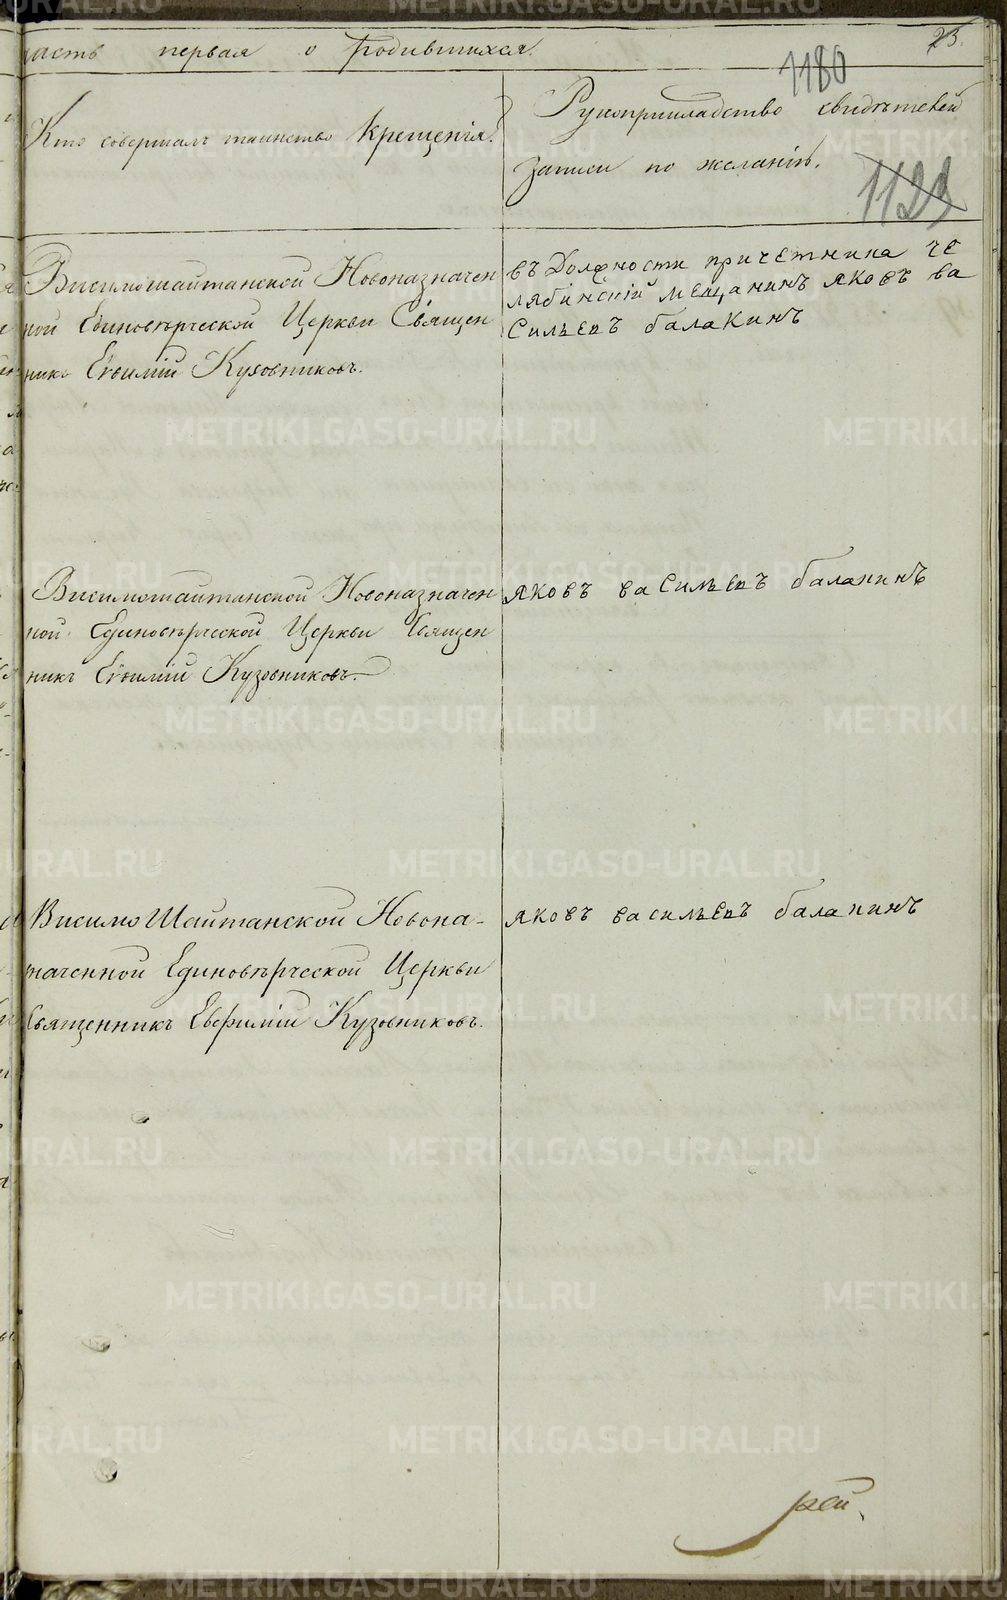 часть первая о родившихся.
23.
1180
Кто совершалъ таинство крещенія.
Рукоприкладство свидѣтелей
записи по желанію.
1123
Висимошайтанской Новоназначен
ной Единовѣрческой Церкви Священ
никъ Евѳимій Кузовниковъ.
въ Должности причетника че
лябинскій мещанинъ яковъ ва
Сильевъ балакинъ
Висимошайтанской Новоназначен
ной Единовѣрческой Церкви Священ
никъ Евѳимій Кузовниковъ.
яковъ васильевъ балакинъ
Висимо Шайтанской Новона-
значенной Единовѣрческой Церкви
Священникъ Евфимій Кузовниковъ.
яковъ васильевъ балакинъ
METRIKI.GASO-URAL.RU